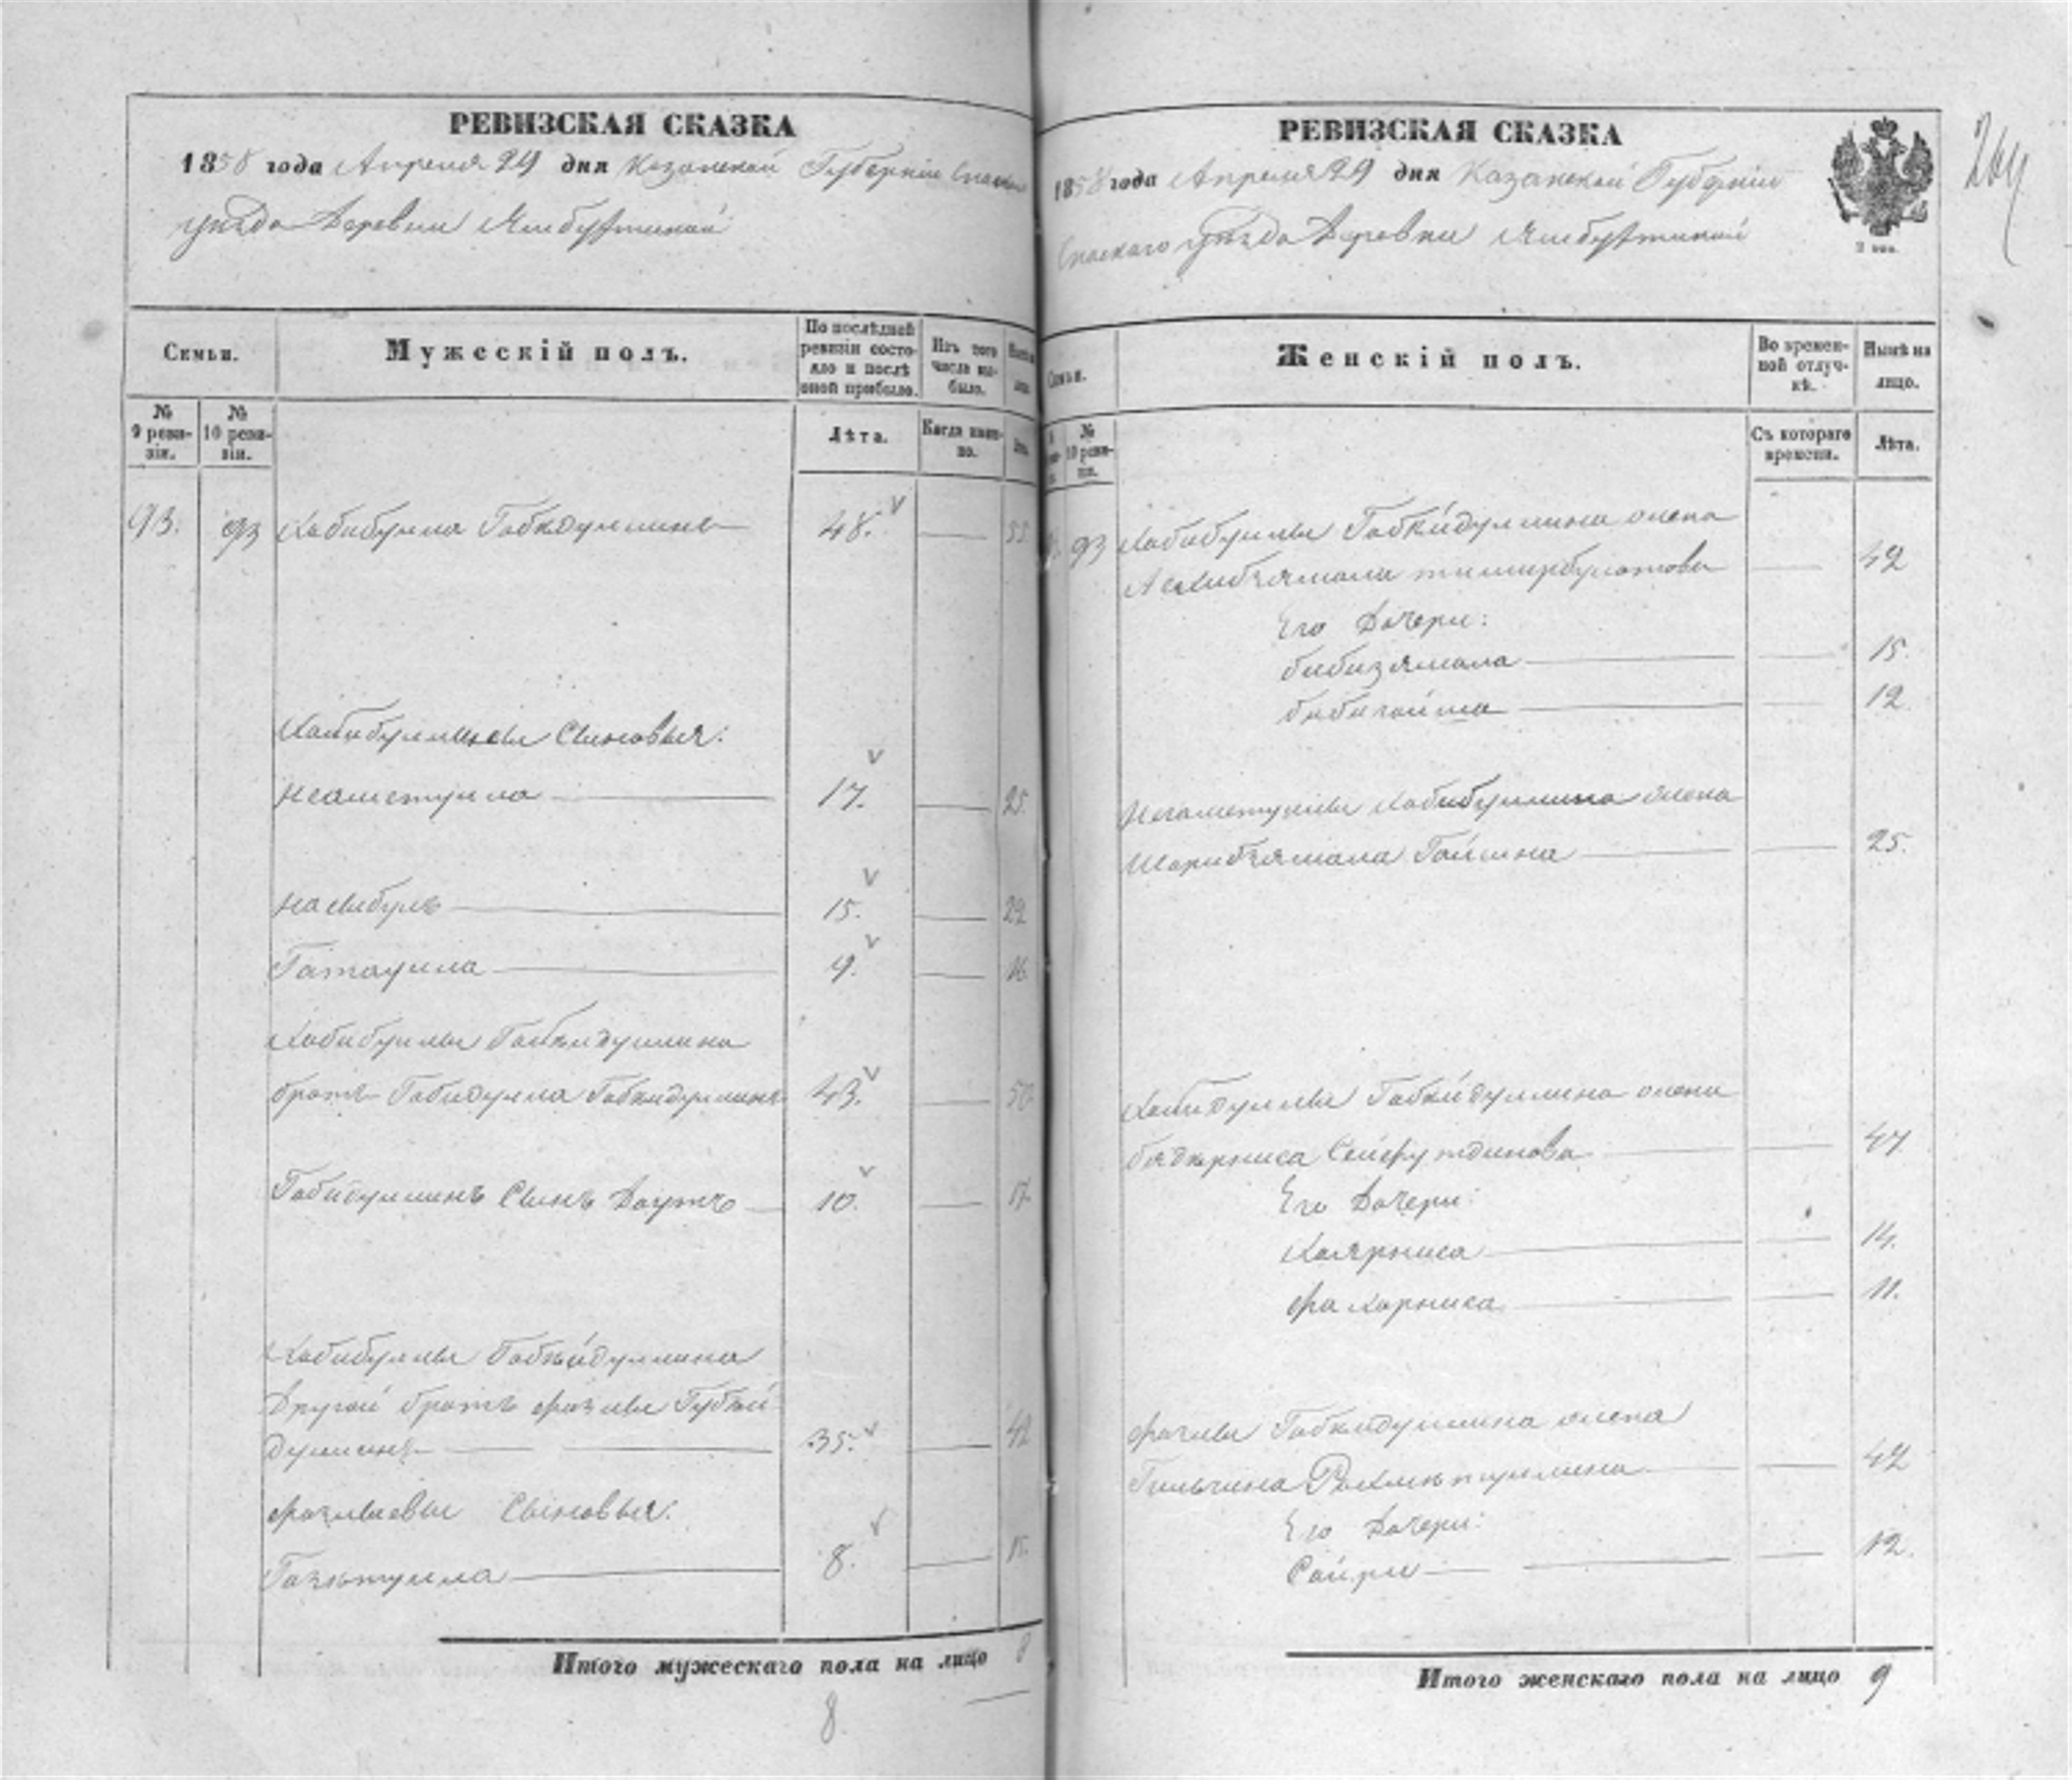 РЕВИЗСКАЯ СКАЗКА
1858 года Апреля 29 дня Казанской Губерніи Спаскаго
уѣзда Деревни Ямбухтиной
Семьи.
Мужескій полъ.
По послѣдней ревизіи состояло и послѣ оной прибыло.
Изъ того числа выбыло.
№ 9 ревизіи.
№ 10 ревизіи.
Лѣта.
Когда именно.
93. 93 Хабибулла Габкдуллинъ 48. 55
Хабибуллины Сыновья:
Неаметулла 17. 25.
Насибулъ 15. 22
Гатаулла 9. 16
Хабибуллы Габкидуллина
братъ Габидулла Габкидуллинъ 43. 50
Габидуллинъ Сынъ Даутъ 10. 17.
Хабибуллы Габкѣйдуллина
Другой братъ Фазлы Губкѣй
дуллинъ 35. 42
Фазлыевы Сыновья:
Газзътулла 8. 15.
Итого мужескаго пола на лицо 8
8.
РЕВИЗСКАЯ СКАЗКА
264
1858 года Апреля 29 дня Казанской Губерніи
Спаскаго уѣзда Деревни Ямбухтиной
Семьи.
Женскій полъ.
Во временной отлучкѣ.
Нынѣ на лицо.
№ 10 ревизіи.
Съ котораго времени.
Лѣта.
93 Хабибуллы Габкѣйдуллина жена
тимирбулатова 42
Его Дочери:
бибизямала 15.
12.
Негаметуллы Хабибуллина жена
25.
Габидуллы Габкѣйдуллина жена
Сейфутдинова 47
Его Дочери:
14.
Фахарниса 11.
Фазлы Габкидуллина жена
42
Его Дочери:
12.
Итого женскаго пола на лицо 9